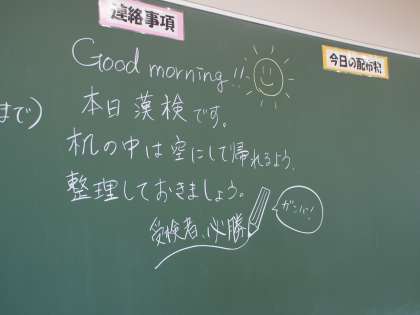 連絡事項
今日の配布物
Good morning!!
まで)
本日漢検です。
机の中は空にして帰れるよう、
整理しておきましょう。
受検者、必勝
ガンバ!